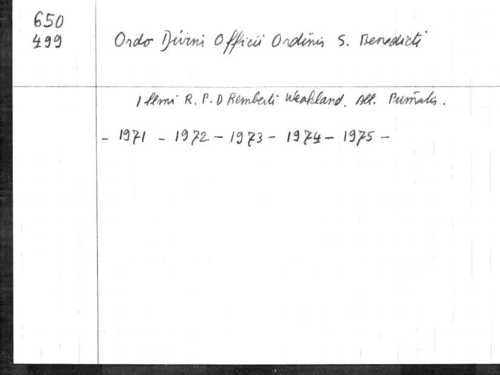 650
499 Ordo Divini Officii Ordinis S. Benedicti
Illmi R. P. D Remberti Weakland. Abb. Primatis.
- 1971 - 1972 - 1973 - 1974 - 1975 -